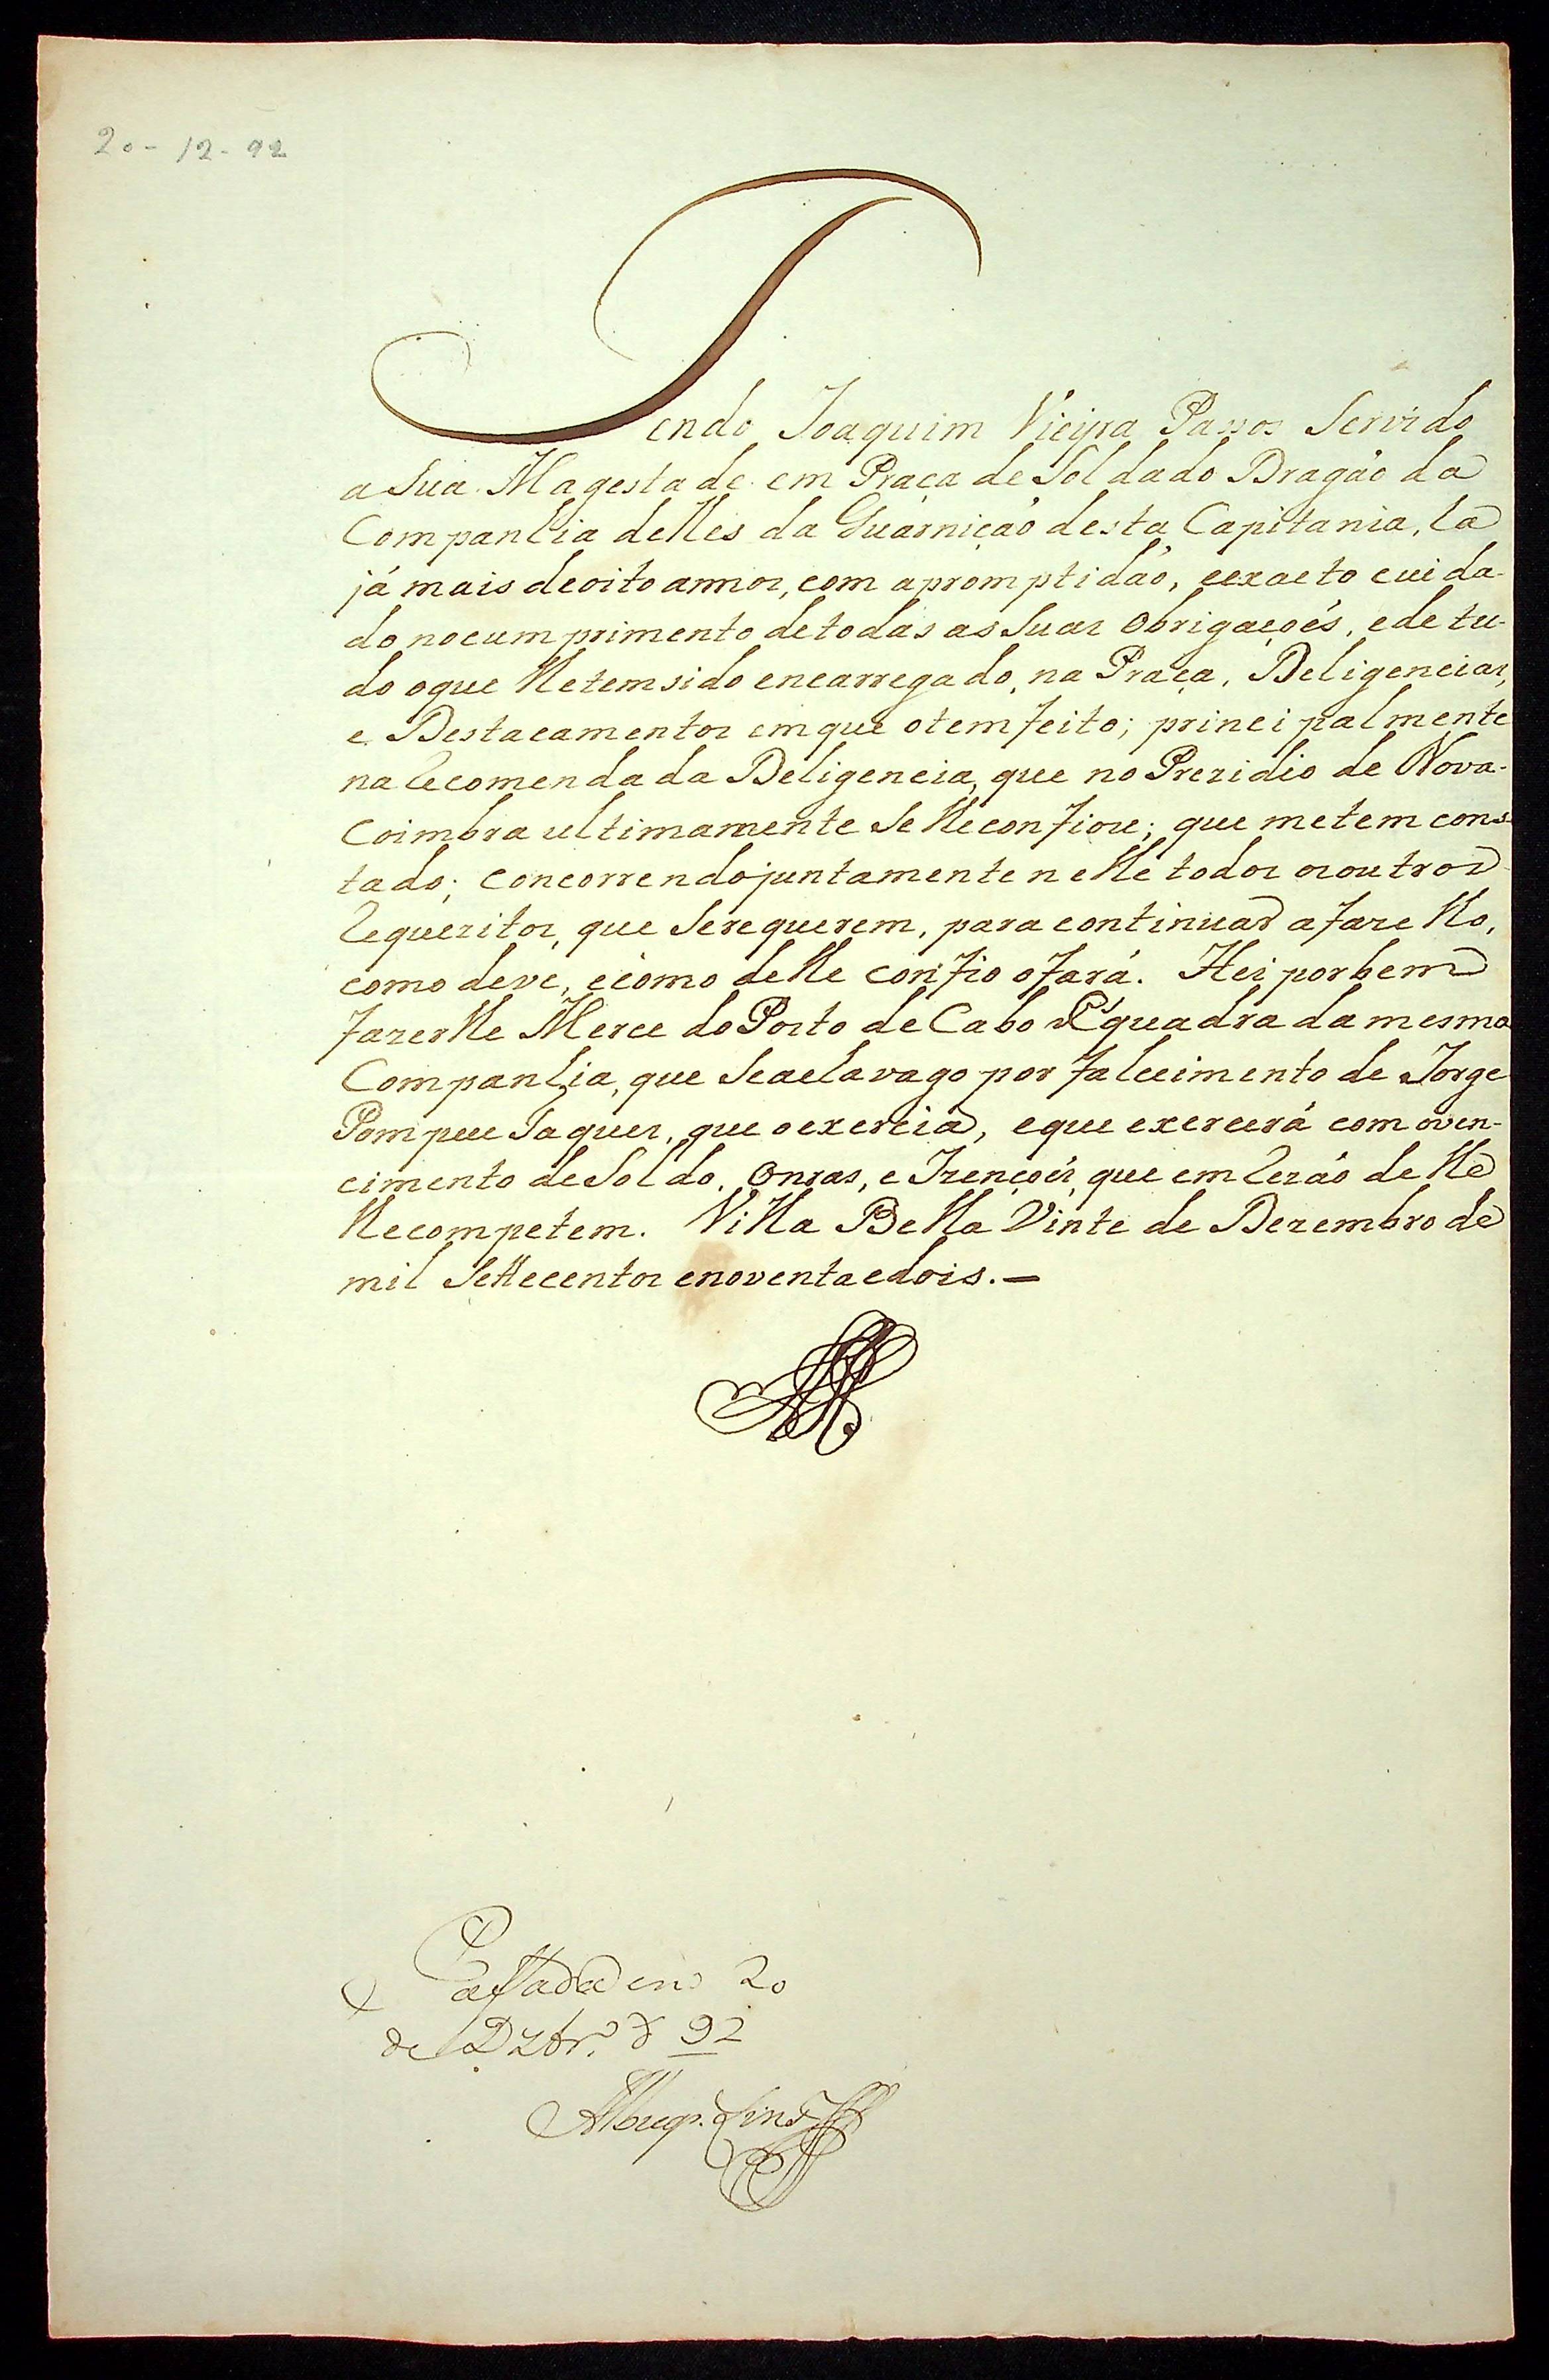 20-12-92
Tendo Joaquim Vieyra Passos Servido
a Sua Magestade em Praça de Soldado Dragão da
Companhia delles da Guarnição desta Capitania, ha
já mais deoito annos, com apromptidão, eexacto cuida-
do nocumprimento detodas as Suas Obrigaçoẽs, ede tu-
do oque lhetemsido encarregado, na Praça, Deligencias,
e Destacamentos emque otemfeito; principalmente
na recomendada Deligencia, que no Prezidio de Nova-
Coimbra ultimamente Se lheconfiou; que metem cons-
tado; concorrendojuntamente nelle todos osoutros
requezitos, que Serequerem, para continuar afazello,
como deve, ecomo delle confio ofará. Hei porbem
fazerlhe Merce do Posto de Cabo d'Esquadra damesma
Companhia, que Seachavago por falecimento de Jorge
Pompeu Taques, que oexercia, eque exercerá com oven-
cimento deSoldo, Onras, e Izençoẽs, que emrezão delle
lhecompetem. Villa Bella Vinte de Dezembro de
mil Settecentos enoventaedois.—
Passada em 20
de Dzbr.º de 92